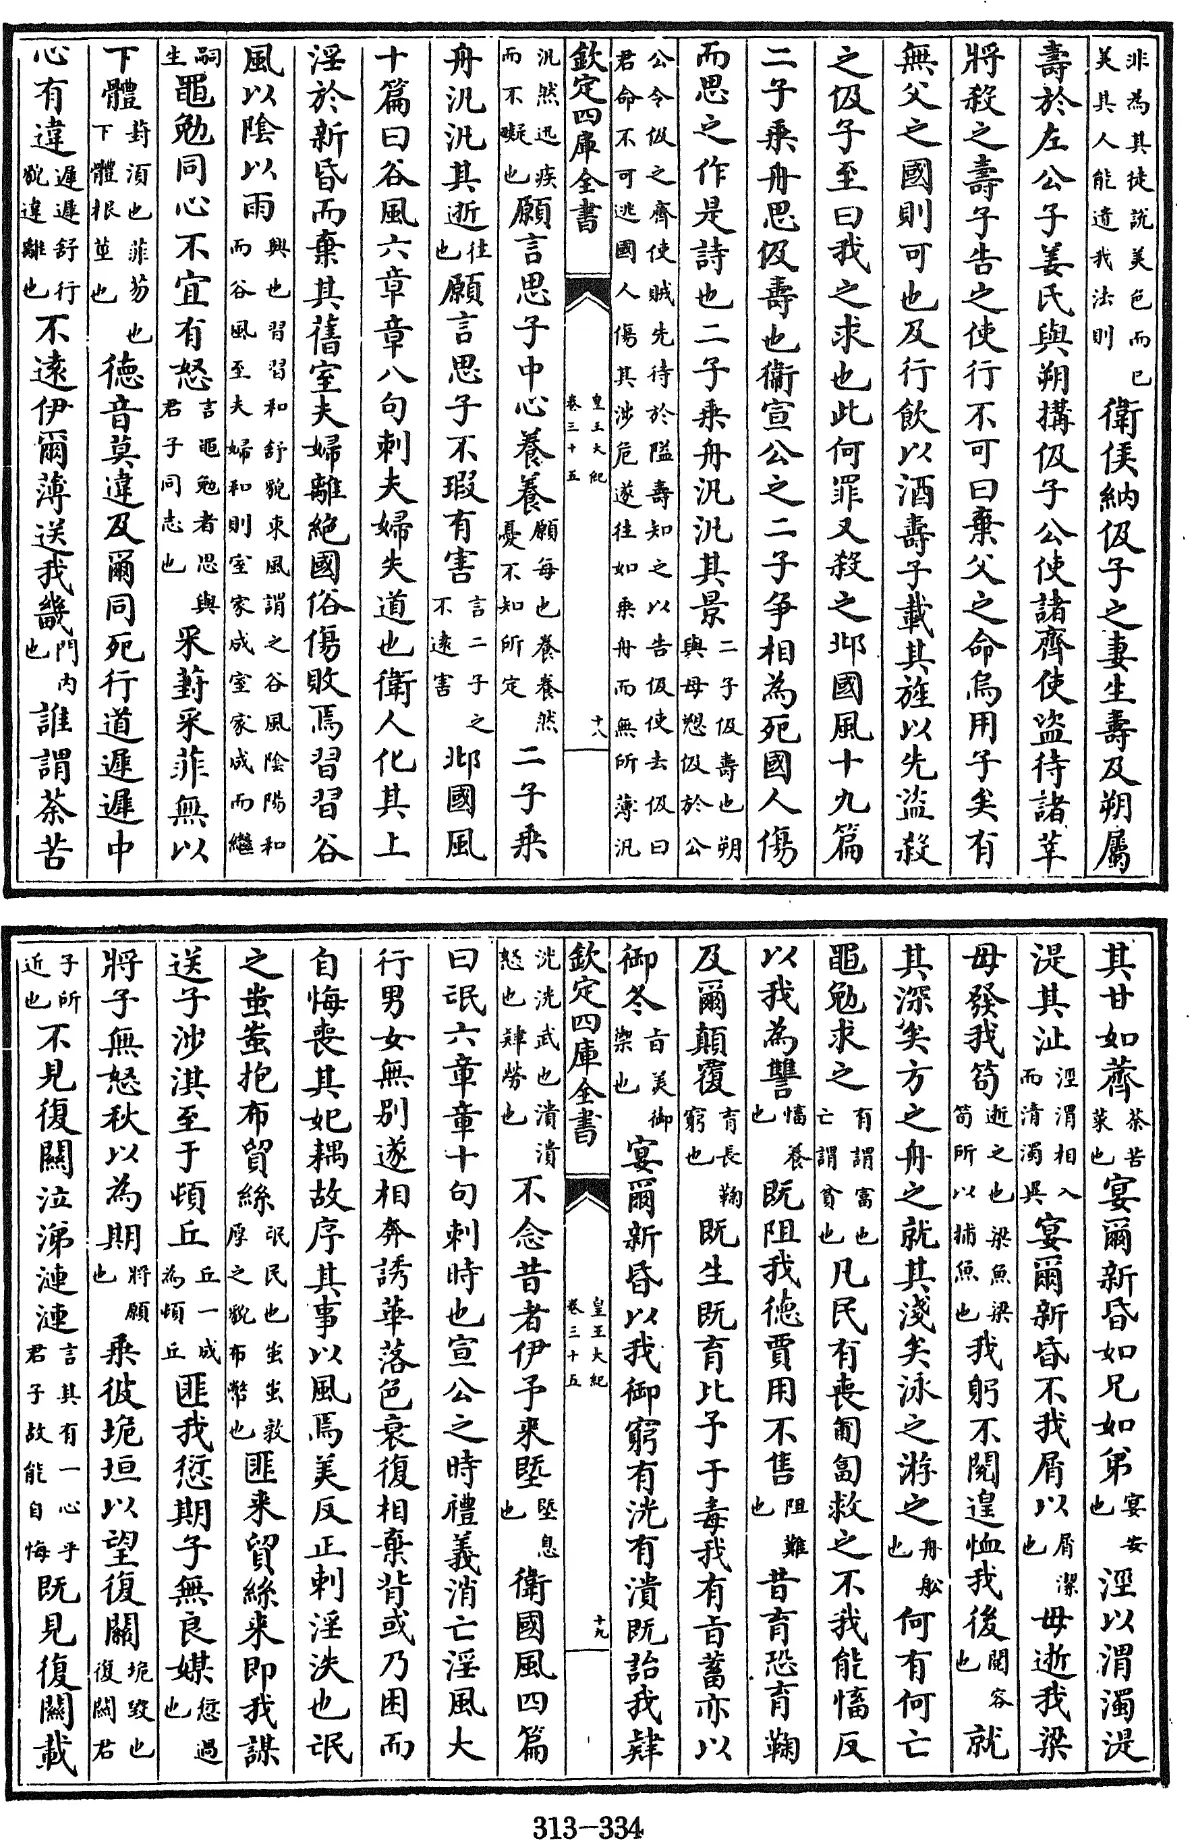 非為其徒說美色而已美其人能遺我法則衛侯納伋子之妻生壽及朔屬
壽於左公子姜氏與朔搆伋子公使諸齊使盜待諸莘
將殺之壽子告之使行不可曰棄父之命烏用子矣有
無父之國則可也及行飲以酒壽子載其旌以先盜殺
之伋子至曰我之求也此何罪又殺之邶國風十九篇
二子乗舟思伋壽也衞宣公之二子争相為死國人傷
而思之作是詩也二子乗舟汎汎其景二子伋壽也朔與母愬伋於公
公令伋之齊使賊先待於隘壽知之以告伋使去伋曰君命不可逃國人傷其涉危遂往如乗舟而無所薄汎
欽定四庫全書 皇王大紀卷三十五 十八
汎然迅疾而不礙也願言思子中心養養願每也養養然憂不知所定二子乗
舟汎汎其逝往也願言思子不瑕有害言二子之不遠害邶國風
十篇曰谷風六章章八句刺夫婦失道也衛人化其上
淫於新昏而棄其舊室夫婦離絶國俗傷敗焉習習谷
風以陰以雨興也習習和舒貌東風謂之谷風陰陽和而谷風至夫婦和則室家成室家成而繼
嗣生黽勉同心不宜有怒言黽勉者思與君子同志也采葑采菲無以
下體葑須也菲芴也下體根莖也德音莫違及爾同死行道遲遲中
心有違遲遲舒行貌違離也不遠伊爾薄送我畿門内也誰謂荼苦
其甘如薺荼苦菜也宴爾新昏如兄如弟宴安也涇以渭濁湜
湜其沚涇渭相入而清濁異宴爾新昏不我屑以屑潔也毋逝我梁
毋發我笱逝之也梁魚梁笱所以捕魚也我躬不閱遑恤我後閱容也就
其深矣方之舟之就其淺矣泳之游之舟船也何有何亡
黽勉求之有謂富也亡謂貧也凡民有喪匍匐救之不我能慉反
以我為讐慉養也既阻我德賈用不售阻難也昔育恐育鞠
及爾顛覆育長鞠窮也既生既育比予于毒我有旨蓄亦以
御冬旨美御禦也宴爾新昏以我御窮有洸有潰既詒我肄
欽定四庫全書 皇王大紀卷三十五 十九
洸洸武也潰潰怒也肄勞也不念昔者伊予来塈塈息也衛國風四篇
曰氓六章章十句刺時也宣公之時禮義消亡淫風大
行男女無别遂相奔誘華落色衰復相棄背或乃困而
自悔喪其妃耦故序其事以風焉美反正刺淫泆也氓
之蚩蚩抱布貿絲氓民也蚩蚩敦厚之貌布幣也匪来貿絲来即我謀
送子涉淇至于頓丘丘一成為頓丘匪我愆期子無良媒愆過也
將子無怒秋以為期將願也乗彼垝垣以望復關垝毁也復關君
子所近也不見復關泣涕漣漣言其有一心乎君子故能自悔既見復關載
313-334